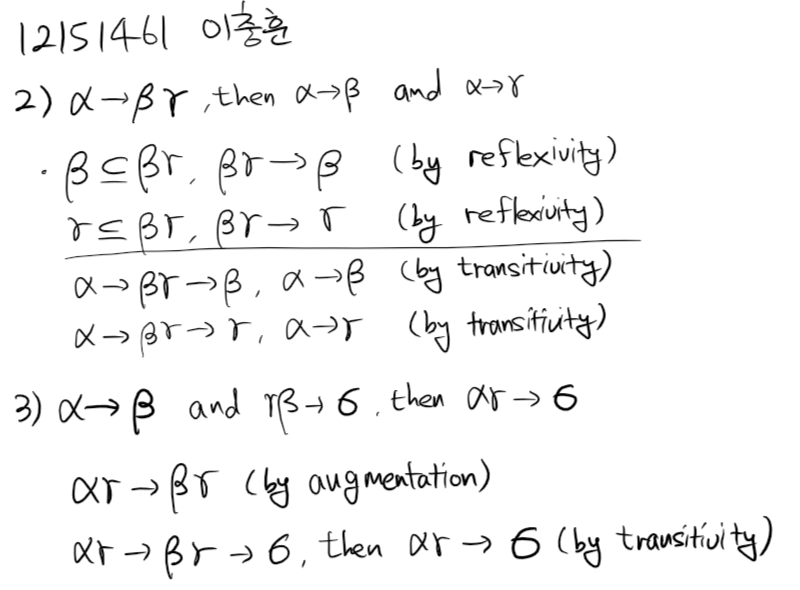 12151461 이충훈
2) α→βγ, then α→β and α→γ
· β⊆βγ, βγ→β (by reflexivity)
γ⊆βγ, βγ→γ (by reflexivity)
α→βγ→β, α→β (by transitivity)
α→βγ→γ, α→γ (by transitivity)
3) α→β and γβ→6, then αγ→6
αγ→βγ (by augmentation)
αγ→βγ→6, then αγ→6 (by transitivity)